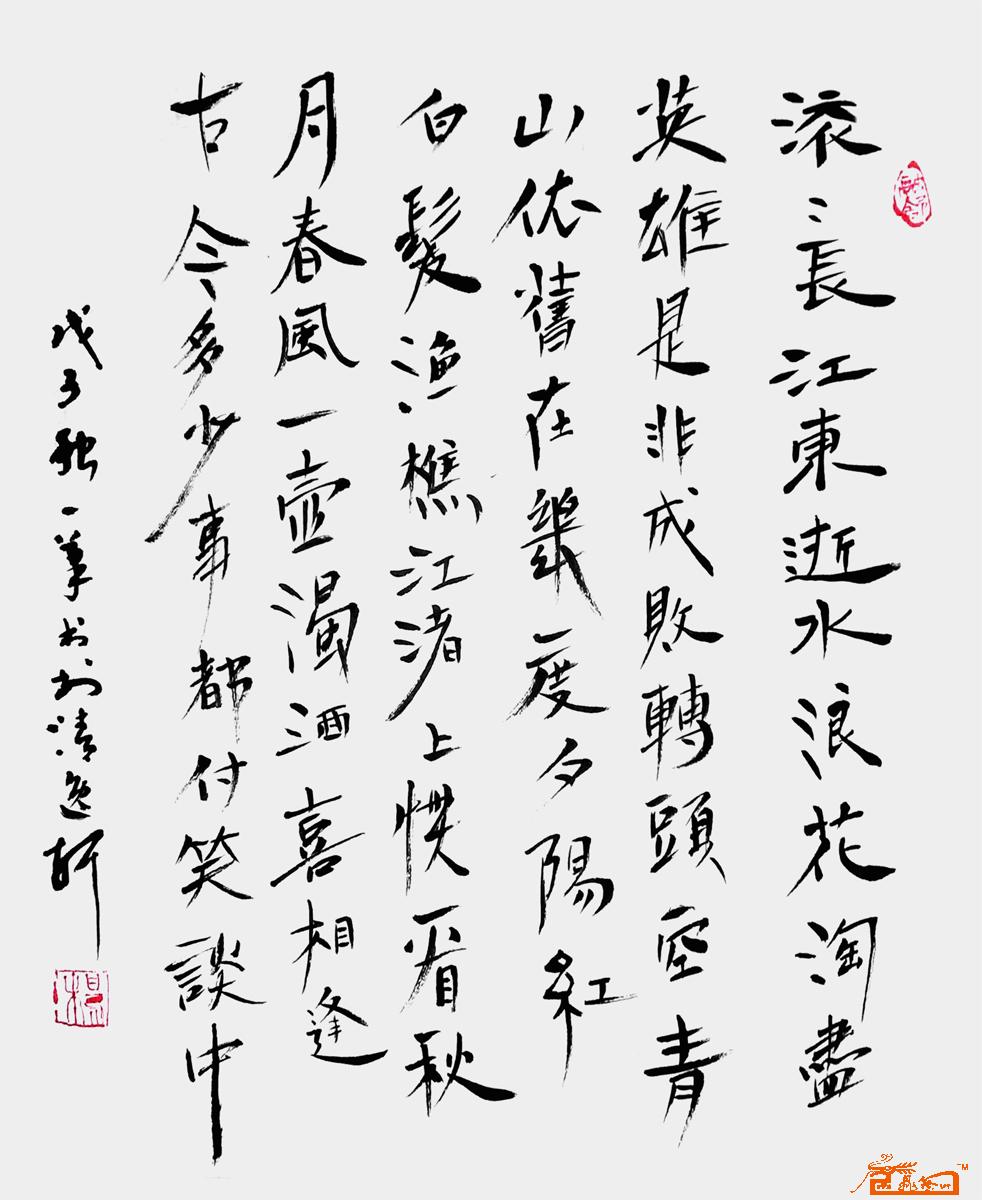 滚〻長江東逝水浪花淘盡
英雄是非成敗轉頭空青
山依舊在幾度夕陽紅
白髮漁樵江渚上慣看秋
月春風一壺濁酒喜相逢
古今多少事都付笑談中
戊子 一 书於清逸軒
楊